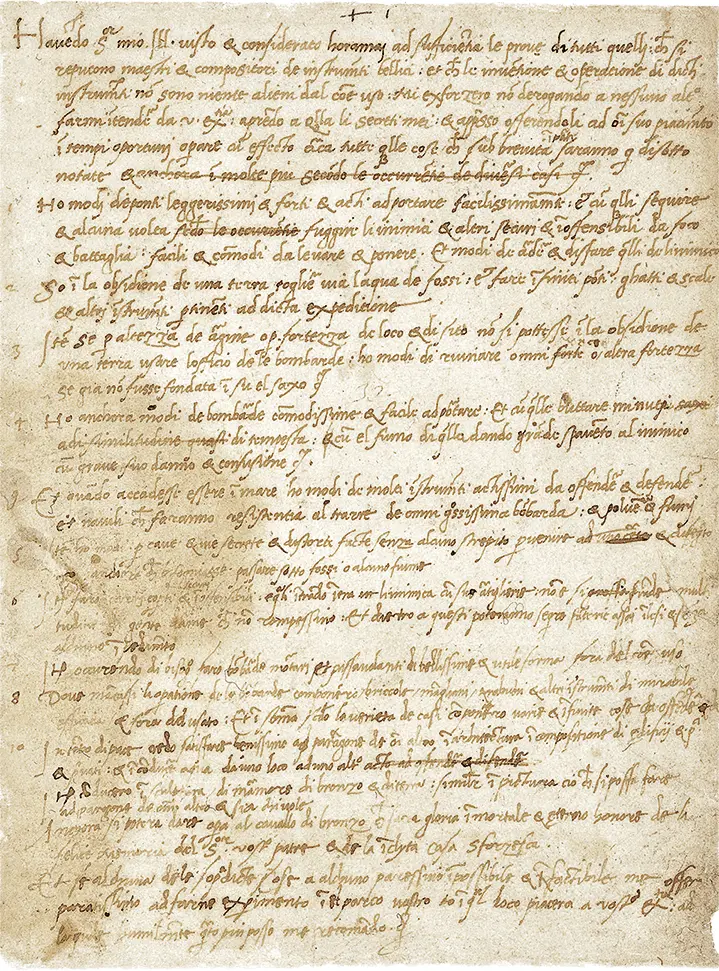 Havēdo S.or mio Ill. visto & considerato horamai ad sufficiētia le prove di tutti quelli ch̄ si
reputono maestri & compositori de instrumti bellici: et ch̄ le inuētione & operatione di dicti
instrumti nō sono niente alieni dal cōe uso: Mi exforzero nō derogando a nessuno altro
farmi ītendere da v. ex.tia: aprēdo a q̄lla li secreti mei: & appsso offerendoli ad ōi suo piacimto
ī tempi oportuni operare cū effecto circa tutte q̄lle cose ch̄ sub brevita ī parte saranno q̄ disotto
notate & anchora ī molte piu secōdo le occurrētie de diuersi casi
1 Ho modi de ponti leggerissimi & forti & acti ad portare facilissimamēte: Et cū q̄lli seguire
& alcuna volta scdo le occurrētie fuggire li inimici & altri securi & īoffensibili da foco
& battaglia: facili & cōmodi da leuare & ponere. Et modi de ardere & disfare q̄lli de linimico
2 So ī la obsidione de una terra toglier uia laqua de fossi: et fare īfiniti pōti ghatti & scale
& altri īstrumti ptinenti ad dicta expeditione
3 Itē se p altezza de argine o p fortezza de loco & di sito nō si potesse ī la obsidione de
una terra usare lofficio de le bombarde: ho modi di ruinare omni forte o altra fortezza
se gia nō fusse fondata ī su el saxo
4 Ho anchora modi de bombarde cōmodissime & facile ad portare: Et cū q̄lle buttare minuti saxi
ad similitudine quasi di tempesta: & cū el fumo di q̄lla dando grāde spauēto al inimico
cū graue suo danno & confusione
9 Et quādo accadesse essere ī mare ho modi de molti īstrumti actissimi da offendere & defendere
et nauili ch̄ faranno resistentia al trarre de omni grossissima bōbarda: & poluere & fumi
5 Itē ho modi p caue & uie secrete & distorte facte senza alcuno strepito p uenire ad & disegnato
passare sotto fossi o alcuno fiume
6 Itē
tudine di gēte darme ch̄ nō rompessino: Et dietro a questi poteranno sequire fanterie assai īlesi & senza
alchuno īpedimto
7 Itē occurrendo di bisogno faro bōbarde mortari et passauolanti di bellissime & utile forme fora del cōe uso
8 Doue mācassi la opatione de le bōbarde componero briccole mangani trabuchi & altri īstrumti di mirabile
efficacia & fora del usato: Et ī somma scdo la uarieta de casi cōponero uarie & īfinite cose da offendere
10 In tēpo di pace credo satisfare benissimo ad paragone de ōi altro ī architectura ī compositione di edificii &
& priuati: & ī cōducere aqua da uno loco ad uno altro acto ad offendere & difendere
Itē cōducero ī sculptura di marmore di bronzo & di terra: similiter ī pictura cio ch̄ si possa fare
ad paragone de omni altro & sia chi uole
Anchora si potera dare opera al cauallo di bronzo ch̄ sara gloria īmortale & eterno honore de la
felice memoria del S.or vostro patre & de la īclyta casa Sforzesca
Et se alchuna de le sopradicte cose a alchuno paressino īpossibile & īfactibile me offero
paratissimo ad farne experimento ī el parco vostro o ī qual loco piacera a vostra ex.tia ad
la quale humilmēte quāto piu posso me recomādo